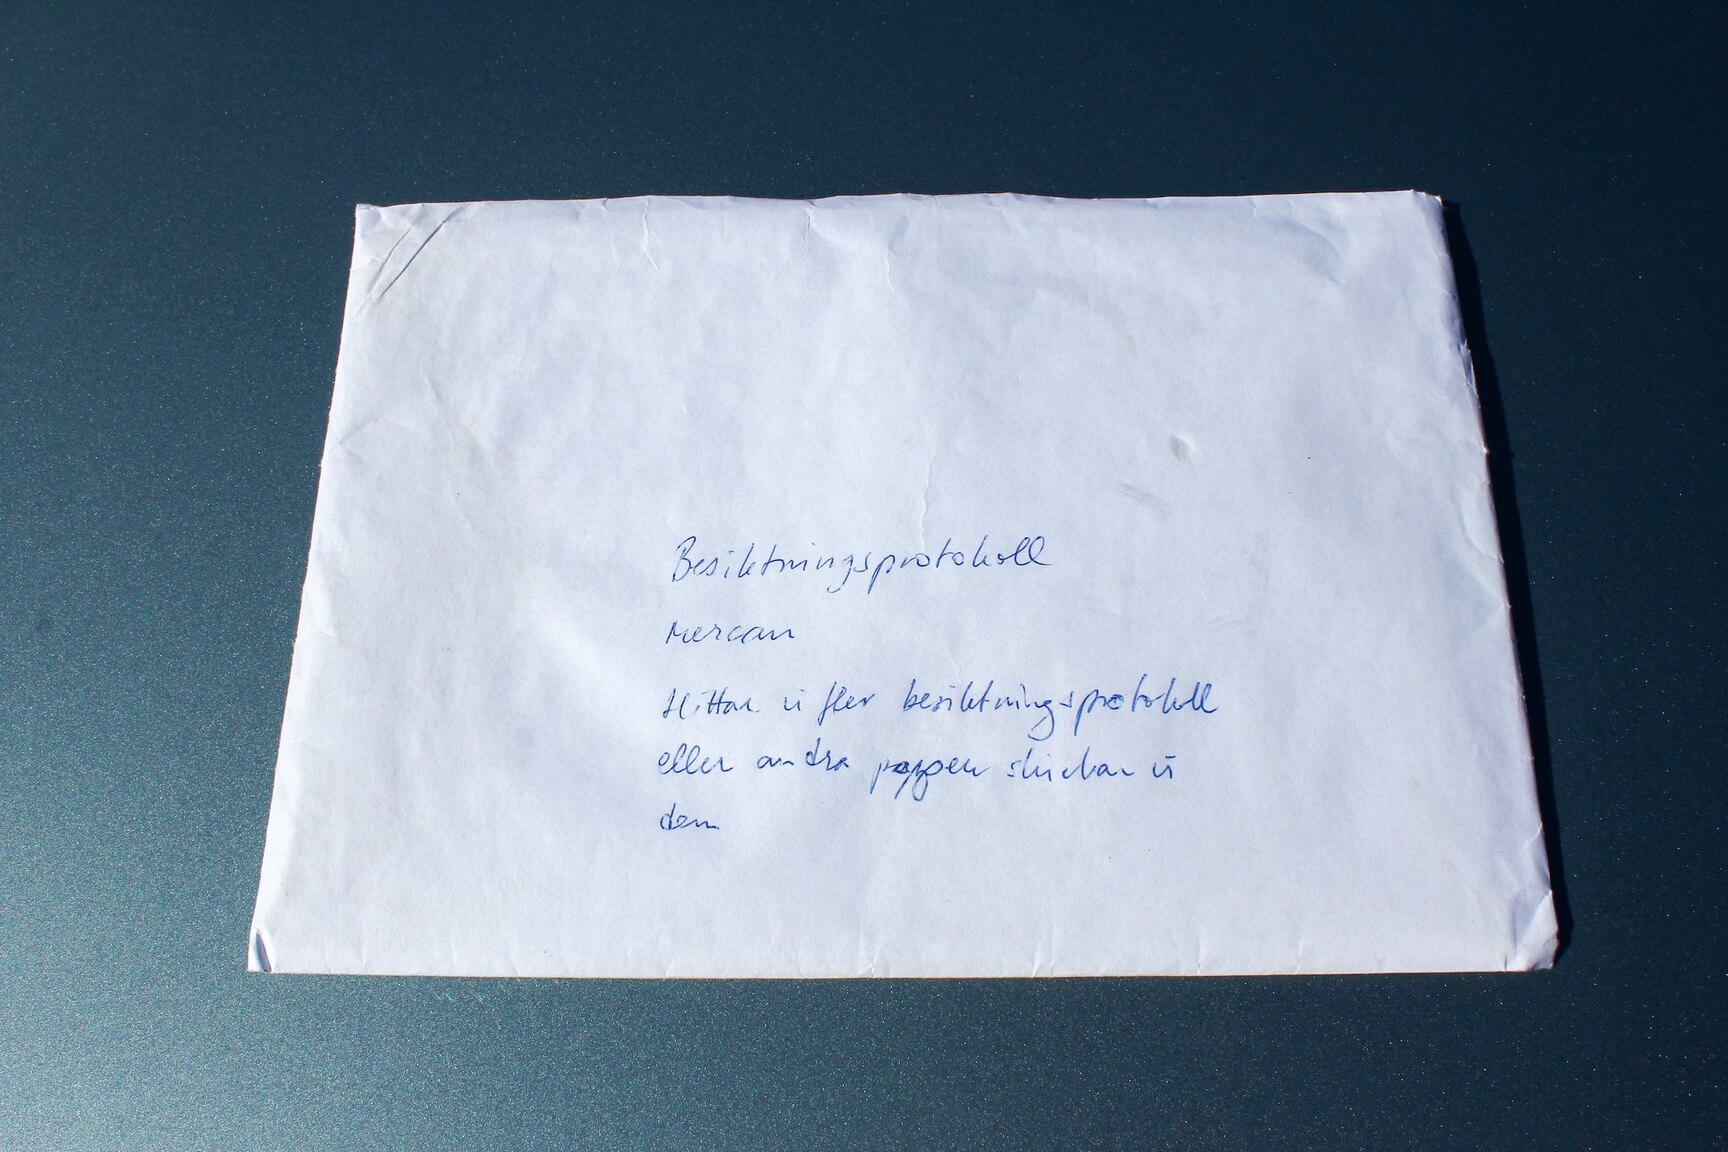 Besiktningsprotokoll
Mercan
Hittar vi fler besiktningsprotokoll
eller andra papper skickar vi
dem